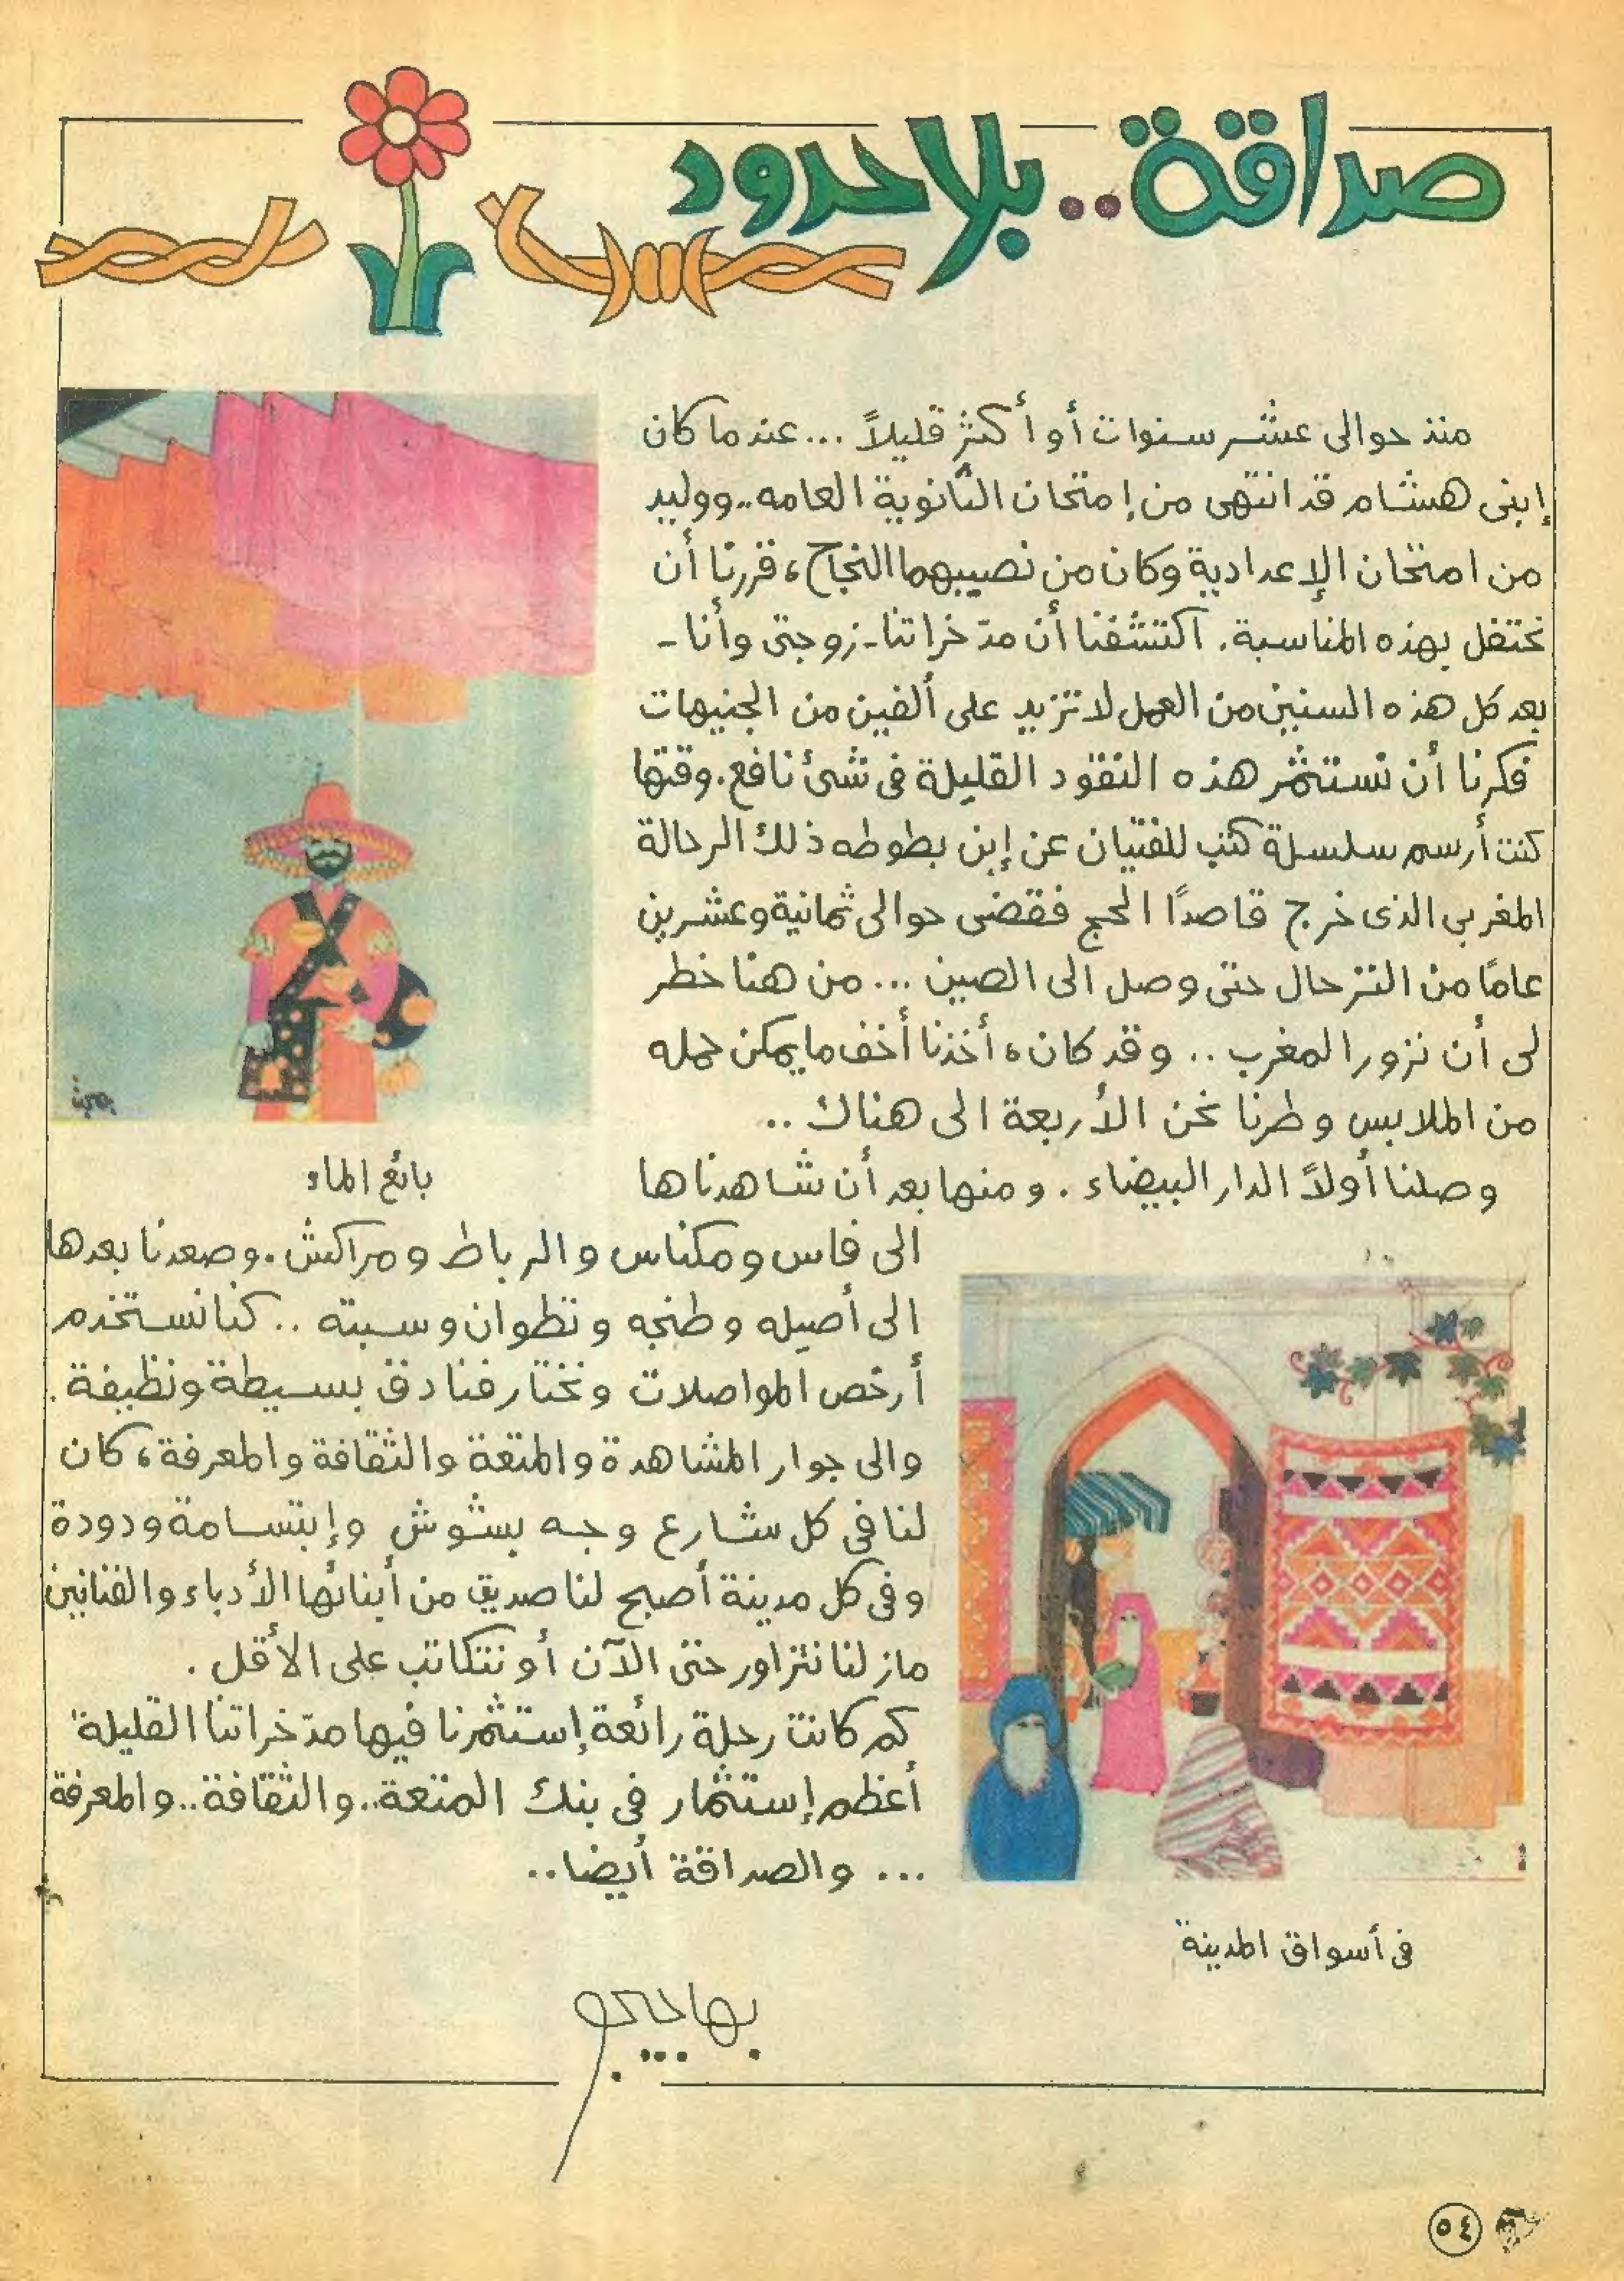 صداقة.. بلا حدود
منذ حوالى عشر سنوات أو أكثر قليلاً ... عندما كان
إبنى هشام قد انتهى من إمتحان الثانوية العامه.. ووليد
من امتحان الإعدادية وكان من نصيبهما النجاح، قررنا أن
نحتفل بهذه المناسبة. اكتشفنا أن مدّخراتنا - زوجتى وأنا -
بعد كل هذه السنين من العمل لا تزيد على ألفين من الجنيهات
فكرنا أن نستثمر هذه النقود القليلة فى شئ نافع. وقتها
كنت أرسم سلسلة كتب للفتيان عن إبن بطوطه ذلك الرحالة
المغربي الذى خرج قاصدًا الحج فقضى حوالى ثمانية وعشرين
عامًا من الترحال حتى وصل الى الصين ... من هنا خطر
لى أن نزور المغرب .. وقد كان، أخذنا أخف ما يمكن حمله
من الملابس وطرنا نحن الأربعة الى هناك ..
وصلنا أولاً الدار البيضاء . ومنها بعد أن شاهدناها
الى فاس ومكناس والرباط ومراكش. وصعدنا بعدها
الى أصيله وطنجه وتطوان وسبته .. كنا نستخدم
أرخص المواصلات ونختار فنادق بسيطة ونظيفة.
والى جوار المشاهدة والمتعة والثقافة والمعرفة، كان
لنا فى كل شارع وجه بشوش وإبتسامة ودودة
وفى كل مدينة أصبح لنا صديق من أبنائها الأدباء والفنانين
مازلنا نتزاور حتى الآن أو نتكاتب على الأقل .
كم كانت رحلة رائعة إستثمرنا فيها مدّخراتنا القليلة
أعظم إستثمار فى بنك المتعة.. والثقافة.. والمعرفة
... والصداقة أيضا..
بائع الماء
فى أسواق المدينة
بهاجيجو
٥٤